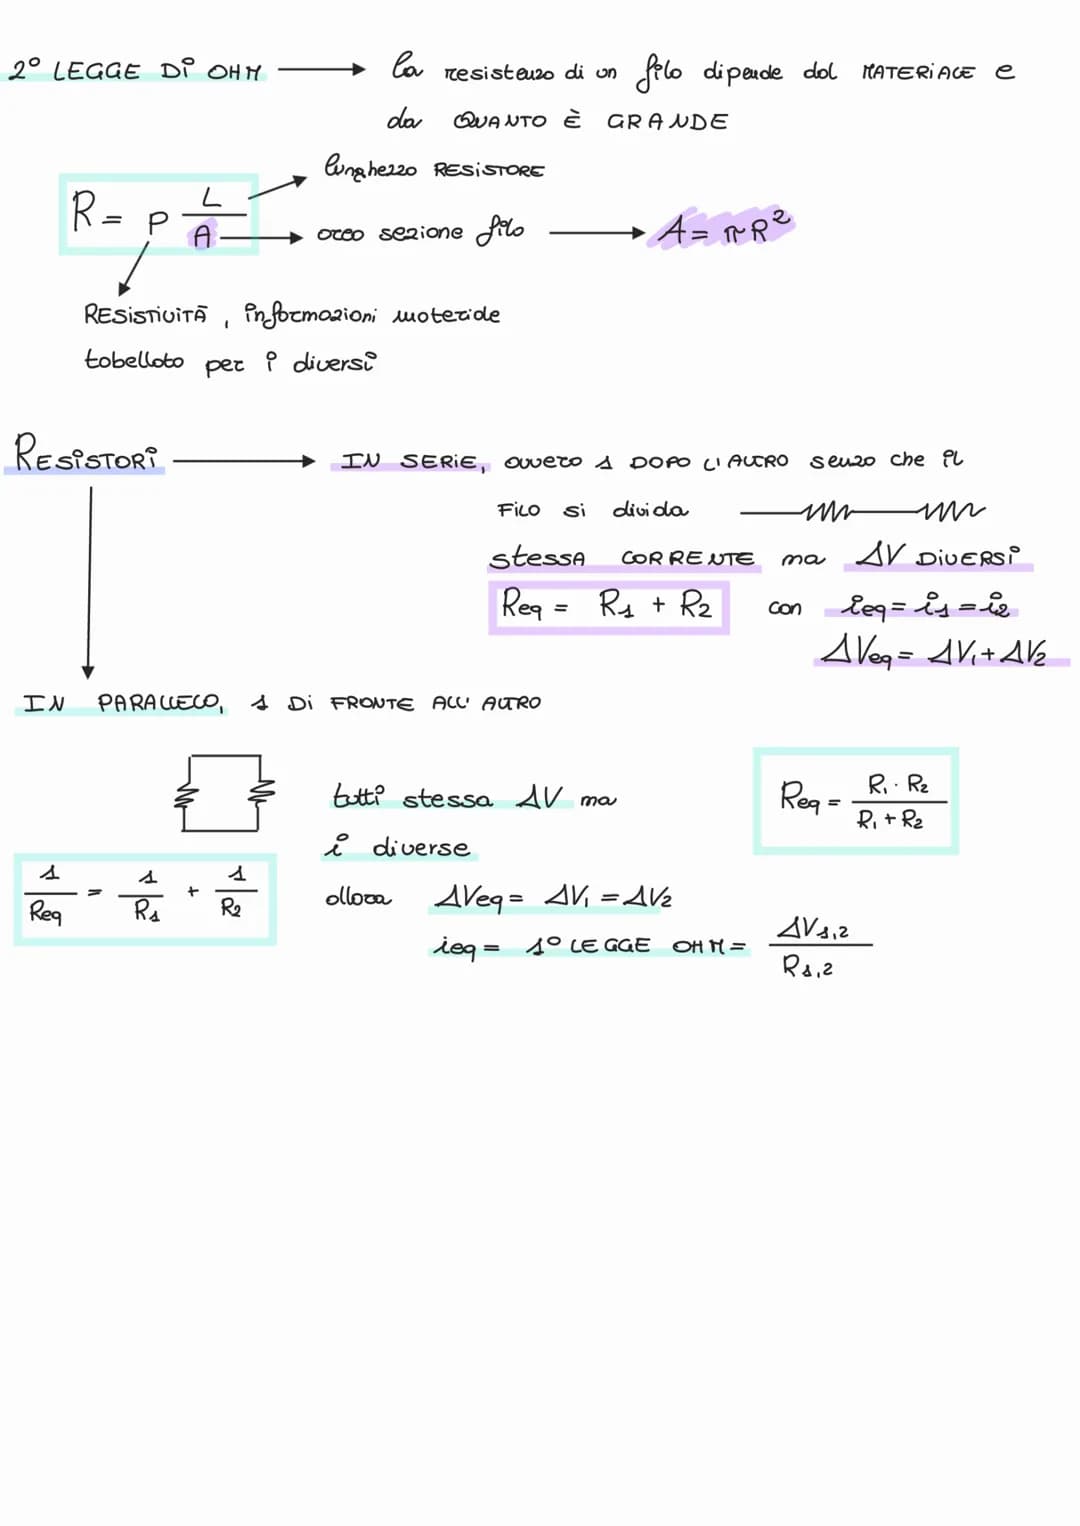 2° LEGGE DI OHM → la resistenza di un filo dipende dal MATERIALE e
da QUANTO È GRANDE
lunghezza RESISTORE
R = ρ L/A
area sezione filo → A = πR²
RESISTIVITÀ, informazioni materiale
tabellato per i diversi
RESISTORI → IN SERIE, ovvero 1 DOPO L'ALTRO senza che il
FILO si divida
stessa CORRENTE ma ΔV DIVERSI
Req = R1 + R2 con ieq = i1 = i2
ΔVeq = ΔV1 + ΔV2
IN PARALLELO, 1 DI FRONTE ALL'ALTRO
tutti stessa ΔV ma
i diverse
Req = R1 · R2 / R1 + R2
1/Req = 1/R1 + 1/R2
allora ΔVeq = ΔV1 = ΔV2
ieq = 1° LEGGE OHM = ΔV1,2 / R1,2